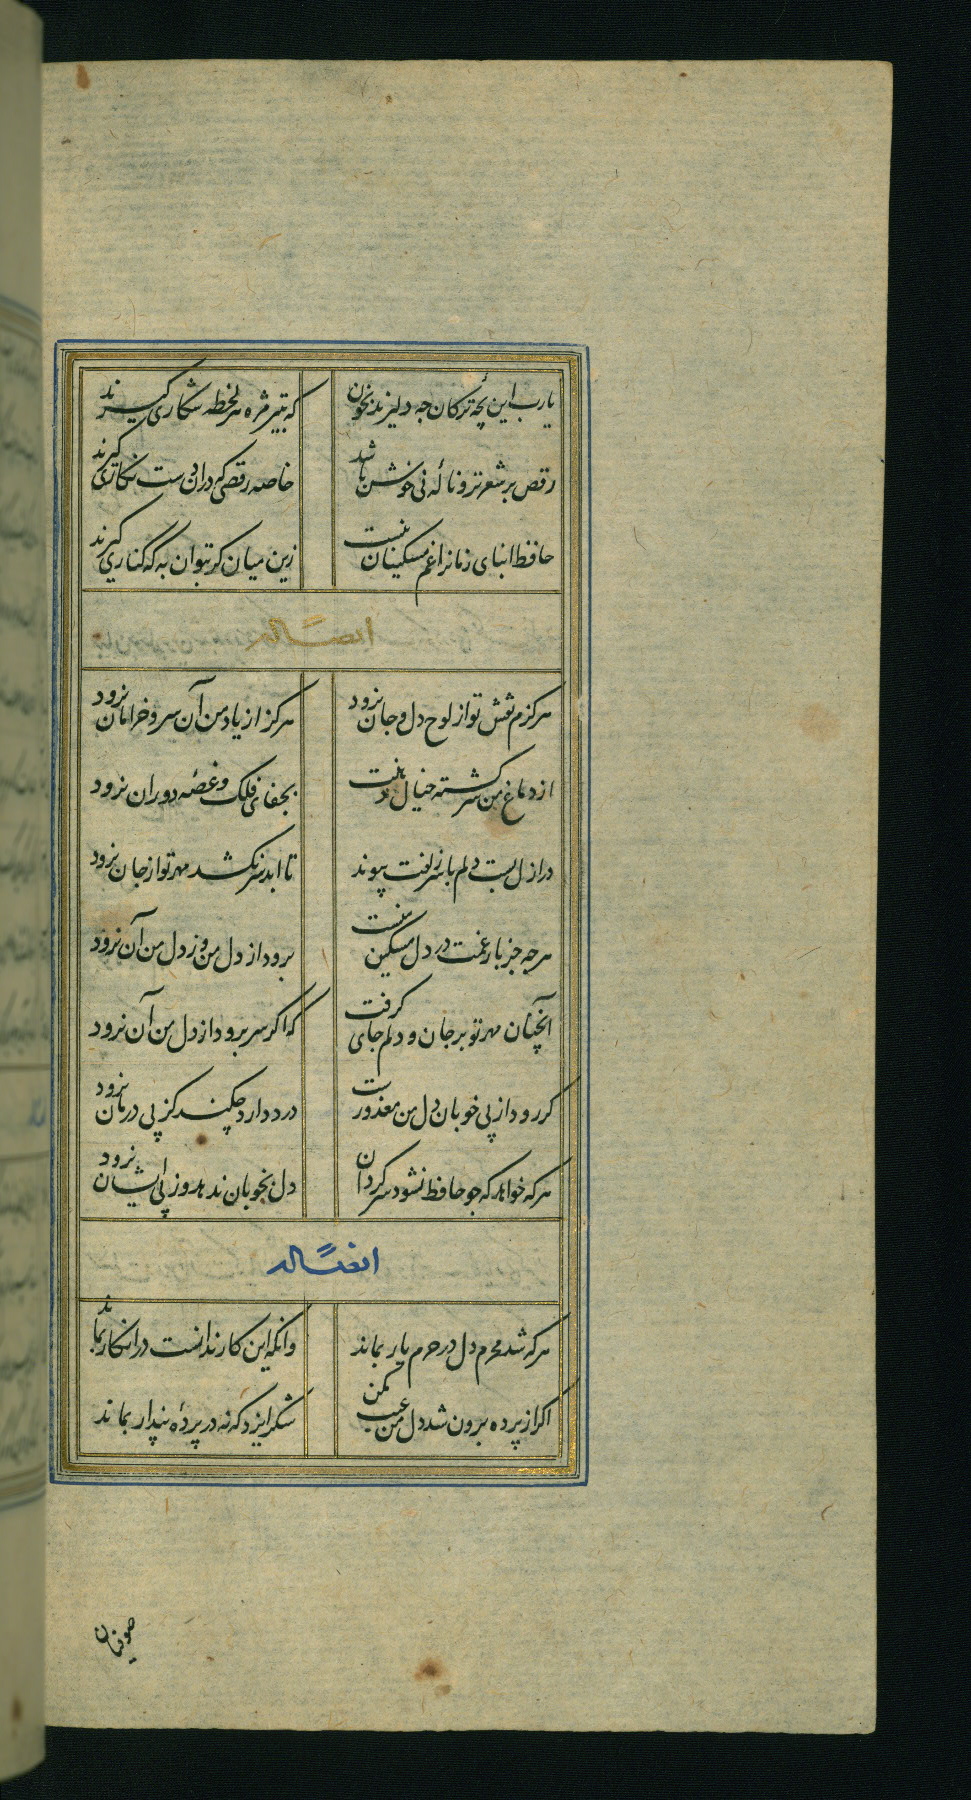 یارب این بچه ترکان چه دلیرند بخون
که بتیر مژه هر لحظه شکاری گیرند
رقص بر شعر تر و نالهٔ نی خوش باشد
خاصه رقصی که در ان دست نگاری گیرند
حافظ ابنای زمانرا غم مسکینان نیست
زین میان گر بتوان به که کناری گیرند
ایضاً له
هرگزم نقش تو از لوح دل و جان نرود
هرگز از یاد من آن سرو خرامان نرود
از دماغ من سرگشته خیال دهنت
بجفای فلک و غصه دوران نرود
در ازل بست دلم با سر زلفت پیوند
تا ابد سر نکشد مهر تو از جان نرود
هر چه جز بار غمت در دل مسکین منست
برود از دل من وز دل من آن نرود
آنچنان مهر تو بر جان و دلم جای گرفت
که اگر سر برود از دل من آن نرود
گر رود از پی خوبان دل من معذورست
درد دارد چکند کز پی درمان نرود
هر که خواهد که چو حافظ نشود سرگردان
دل بخوبان ندهد وز پی ایشان نرود
ایضاً له
هر که شد محرم دل در حرم یار بماند
وانکه این کار ندانست در انکار بماند
اگر از پرده برون شد دل من عیب مکن
شکر ایزد که نه در پردهٔ پندار بماند
صوفیان